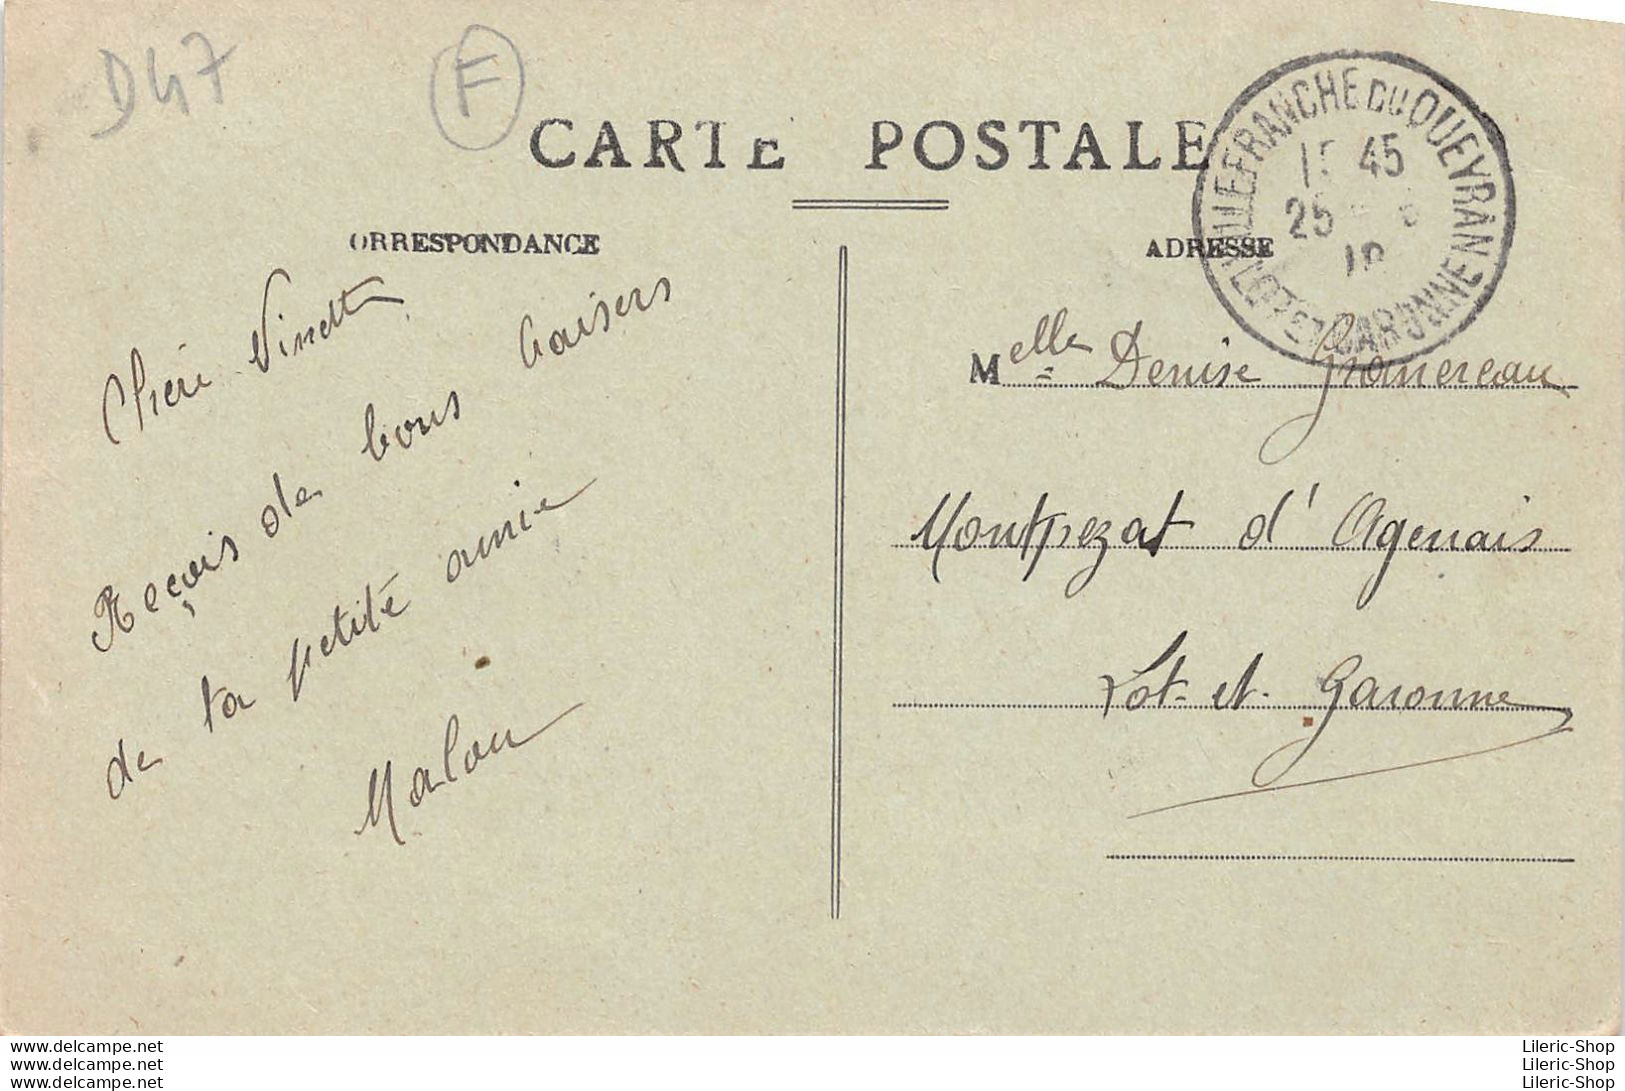 D47
F
CARTE POSTALE
ORRESPONDANCE
ADRESSE
VILLEFRANCHE DU QUEYRAN
45
25
LOT ET GARONNE
Chère Ninette
Reçois de bons baisers
de ta petite amie
Malou
Melle Denise
Montpezat d'Agenais
Lot-et-Garonne
www.delcampe.net
www.delcampe.net
www.delcampe.net
Lileric-Shop
Lileric-Shop
Lileric-Shop